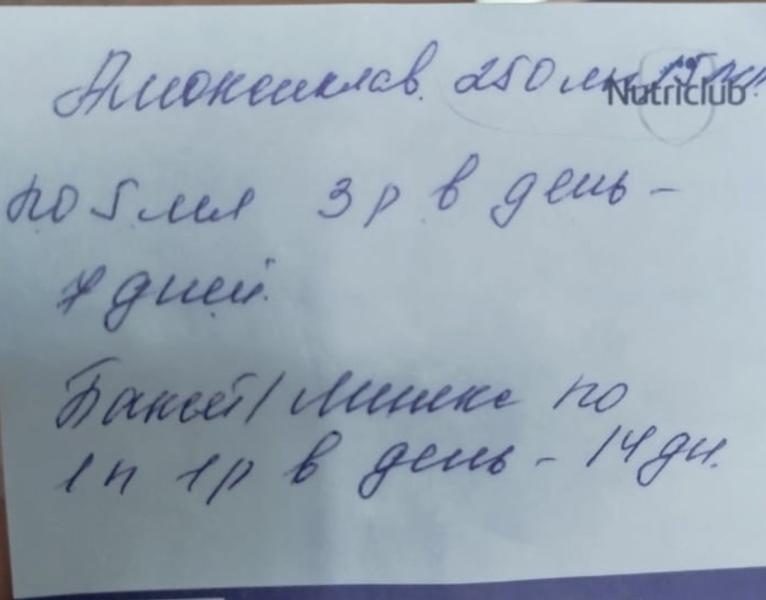 Амоксиклав. 250 мг/5 мл.
Nutriclub
по 5 мл 3 р в день –
7 дней.
Баксет/Линекс по
1п 1р в день – 14 дн.